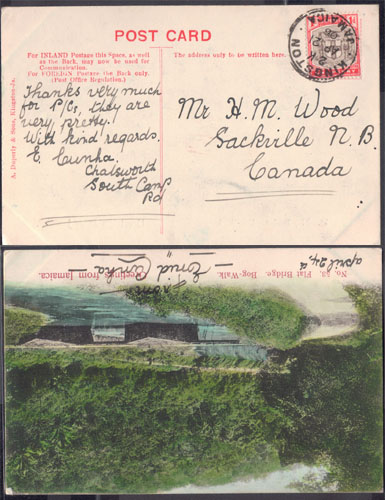 POST CARD
For INLAND Postage this Space, as well
as the Back, may now be used for
Communication.
For FOREIGN Postage the Back only.
(Post Office Regulation.)
The address only to be written here.
KINGSTON
JAMAICA
A. Duperly & Sons, Kingston, Ja.
Thanks very much
for P/Cs, they are
very pretty.
With kind regards.
E. Cunha.
Chatsworth
South Camp
Rd
Mr H. M. Wood
Sackville N. B.
Canada
No. 53. Flat Bridge. Bog-Walk. Greetings from Jamaica.
april 24th
From
Enid Cunha